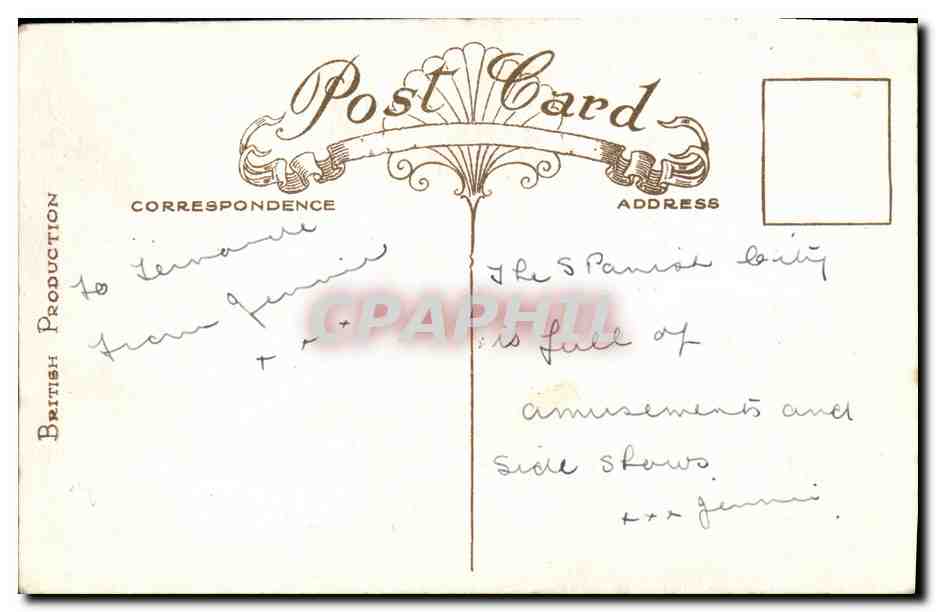 Post Card
CORRESPONDENCE
ADDRESS
BRITISH PRODUCTION
to Fernande
from Jennie
+ + +
The Spanish City
is full of
amusements and
Side Shows
+++ Jennie.
CPAPHIL